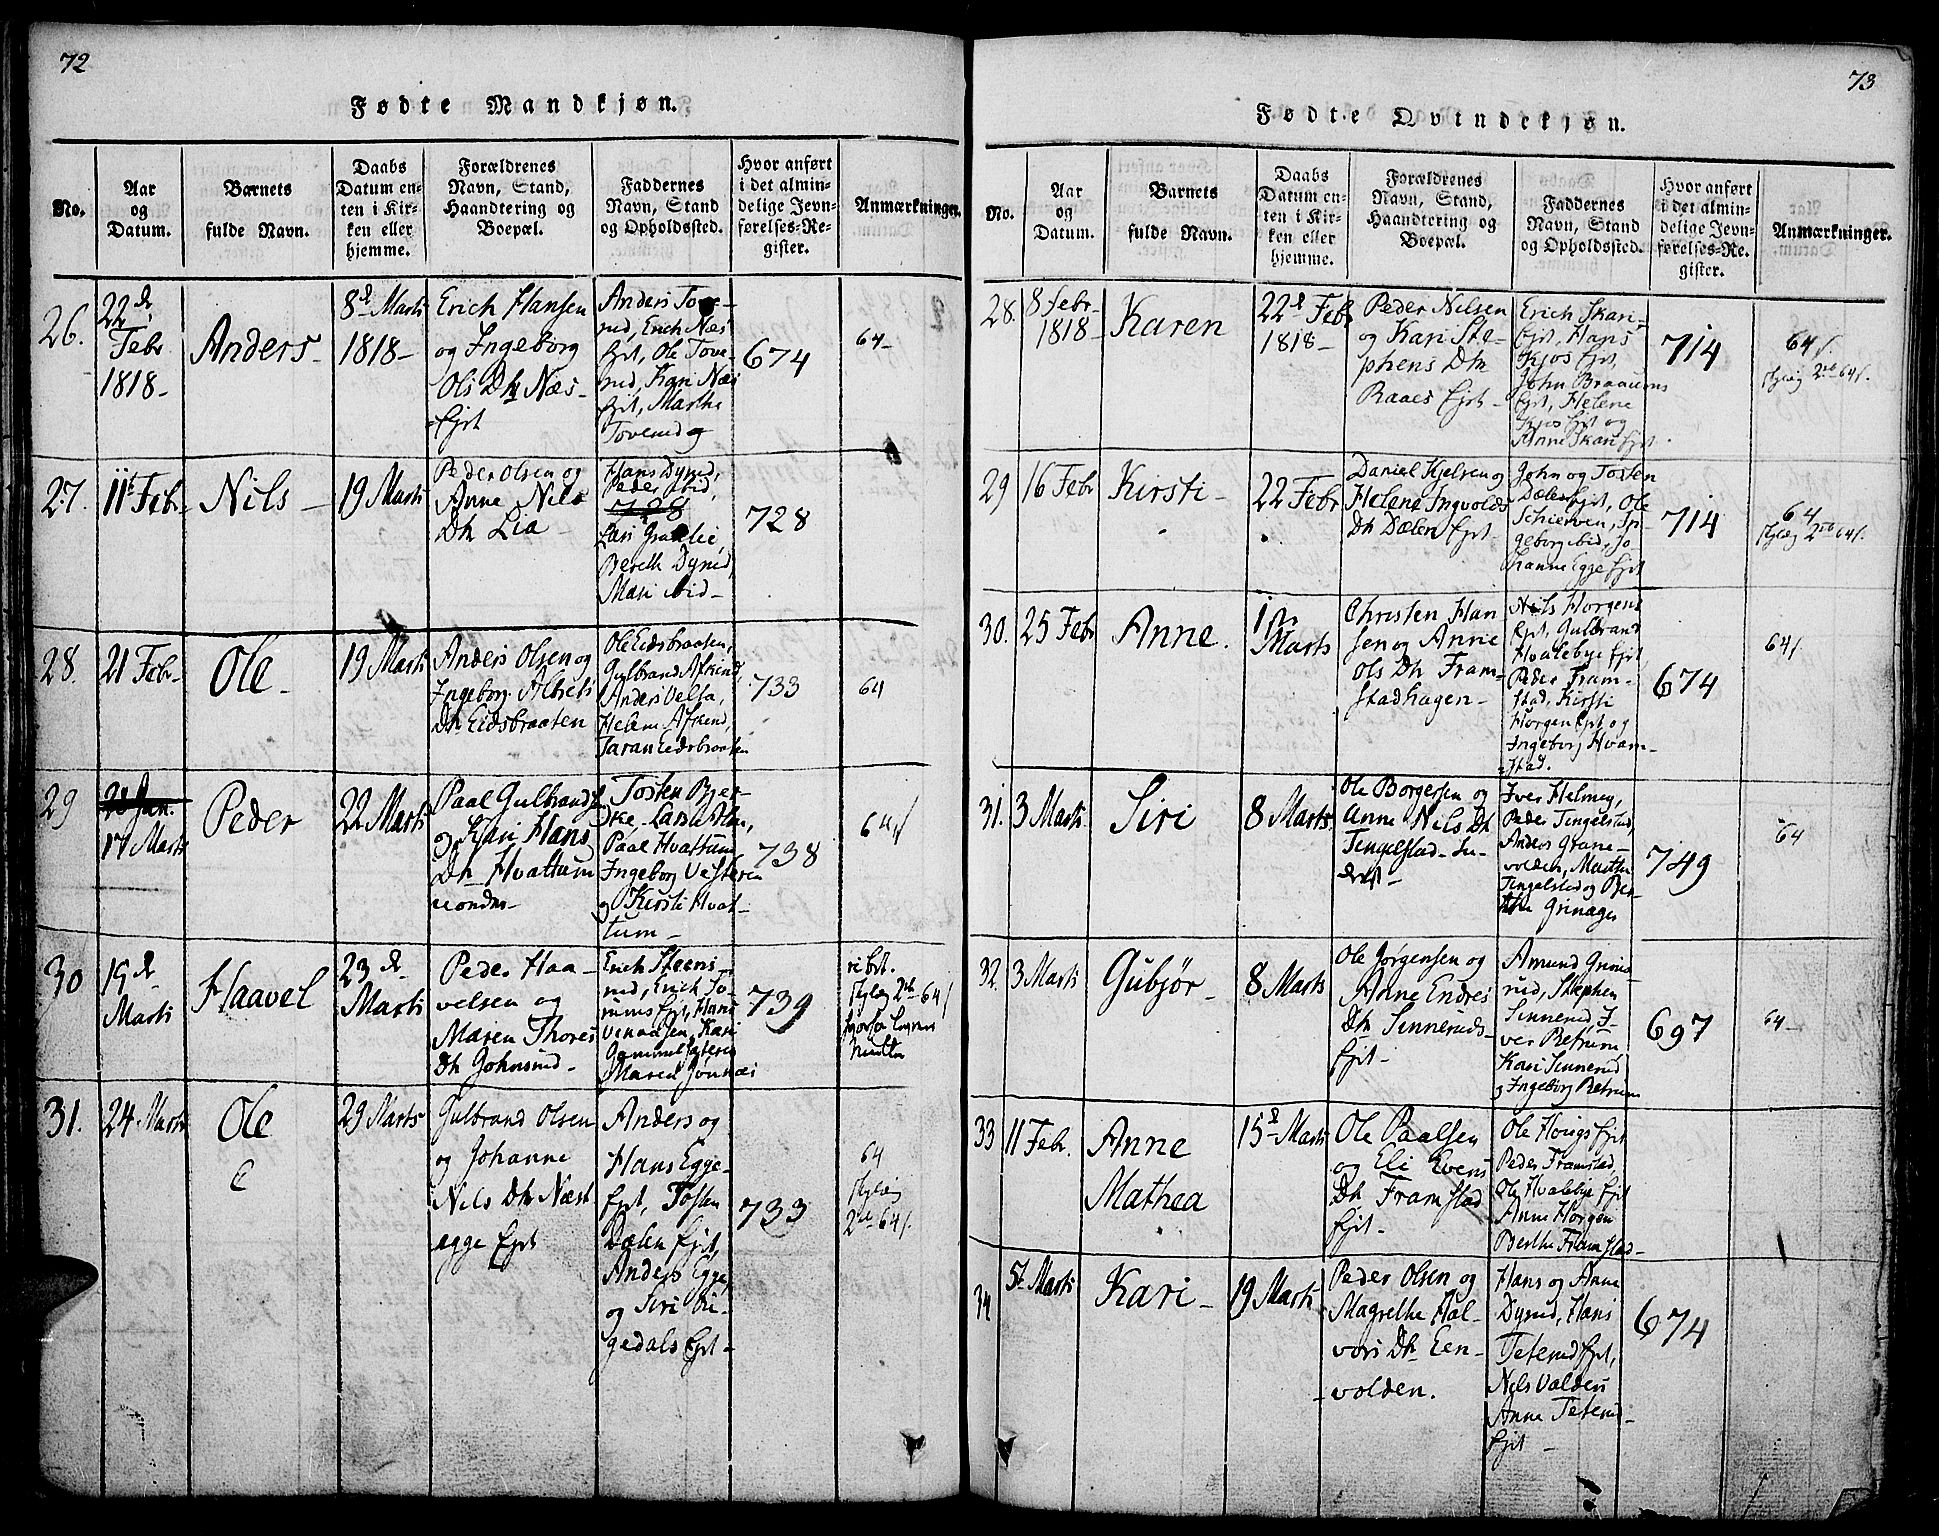 72
Fødte Mandkjøn.
No.
Aar
og
Datum.
Barnets
fulde Navn.
Daabs
Datum en-
ten i Kir-
ken eller
hjemme.
Forældrenes
Navn, Stand,
Haandtering og
Boepæl.
Faddernes
Navn, Stand
og Opholdssted.
Hvor anført
i det almin-
delige Jevn-
førelses-Re-
gister.
Anmærkninger.
26.
22d
Febr
1818-
Anders-
8d Marti
1818-
Erich Hansen
og Ingeborg
Ols Dtr Næs-
Ejrt
Anders Tove-
rud, Erich Næs
Ejrt, Ole Tove-
rud, Kari Næs
Ejrt, Marthe
Toverud og
674
64-
27.
11t Febr-
Nils-
19 Marti
Peder Olsen og
Anne Nils
Dtr Lia-
Hans Dyrud,
Peder ibid,
728
Berthe Dyrud,
Mari ibid-
728
28.
21 Febr-
Ole-
19 Marti
Anders Olsen og
Ingeborg
Dtr Eidsbraaten
Ole Eidsbraaten,
Gulbrand
Anders Velsa,
Helene
Taran Eidsbraaten
733
64
29
17 Marti
Peder
22 Marti
Paal Gulbrands
og Kari Hans
Dtr Hvattum
Tosten Bjer-
ke,
Paal Hvattum
Ingeborg Vesteren
og Kirsti Hvat-
tum-
738
64/
30
19d
Marti
Haavel
23d
Marti
Peder Haa-
velsen og
Maren Thores
Dtr Gohnsrud-
Erich Steens
rud, Erich To-
rums Ejrt, Hans
Kari
739
2de 64/
31.
24 Marti
Ole
29 Marts
Gulbrand Olsen
og Johanne
Nils Dtr Næst
egge Ejrt
Anders og
Hans Egge-
Ejrt, Tosten
Dælen Ejrt,
Anders Egge,
og Siri Ri-
gedals Ejrt-
733
64
2de 64/.
73
Fødte Qvindekjøn.
No.
Aar
og
Datum.
Barnets
fulde Navn.
Daabs
Datum en-
ten i Kir-
ken eller
hjemme.
Forældrenes
Navn, Stand,
Haandtering og
Boepæl.
Faddernes
Navn, Stand
og Opholdssted.
Hvor anført
i det almin-
delige Jevn-
førelses-Re-
gister.
Anmærkninger.
28.
8 Febr-
1818-
Karen
22d Febr
1818-
Peder Nilsen
og Kari Ste-
phens Dtr
Raaes Ejrt-
Erich Skari-
Ejrt, Hans
Kjos Ejrt,
John Braaums
Ejrt, Helene
Kjos Ejrt og
Anne Skari Ejrt.
714
64/.
2de 64/.
29
16 Febr
Kirsti-
22 Febr
Daniel Kjelsen og
Helene Ingvolds
Dtr Dælen Ejrt-
John og Tosten
Dælen Ejrt, Ole
Schierven, In-
geborg ibid, Jo-
hanne Egge Ejrt
714
64
2de 64/.
30.
25 Febr
Anne.
1ste
Marts
Christen Han
sen og Anne
Ols Dtr Fram-
stadhagen-
Nils Horgens
Ejrt, Gulbrand
Hvalebye Ejrt
Peder Fram-
stad, Kirsti
Horgen Ejrt og
Ingeborg Hvam-
stad.
674
64/.
31.
3 Marti
Siri
8 Marts
Ole Borgersen og
Anne Nils Dtr
Tengelstad-
Iver Helmey,
Peder Tengelstad,
Anders Grane-
volden, Marthe
Tengelstad og Ber-
the Grinager
749
64
32.
3 Marti
Gubjør-
8 Marts
Ole Jørgensen og
Anne Endres
Dtr Sinneruds-
Ejrt-
Amund Grons-
rud, Stephen
Sinnerud, I-
ver Retrum
Kari Sinnerud
og Ingeborg Retrum
697
64-
33
11 Febr.
Anne
Mathea
15d Marti
Ole Paalsen
og Eli Evens
Dtr Framstad
Ejrt-
Ole Horgs Ejrt
Peder Framstad,
Ole Hvalebye Ejrt
Anne Horgen
Berthe Framstad-
34
5t Marti
Kari-
19 Marti
Peder Olsen og
Magrethe Hal-
vors Dtr Een-
volden.
Hans og Anne
Dyrud, Hans
Teterud Ejrt,
Nils Valders
Anne Teterud-
Ejrt-
674